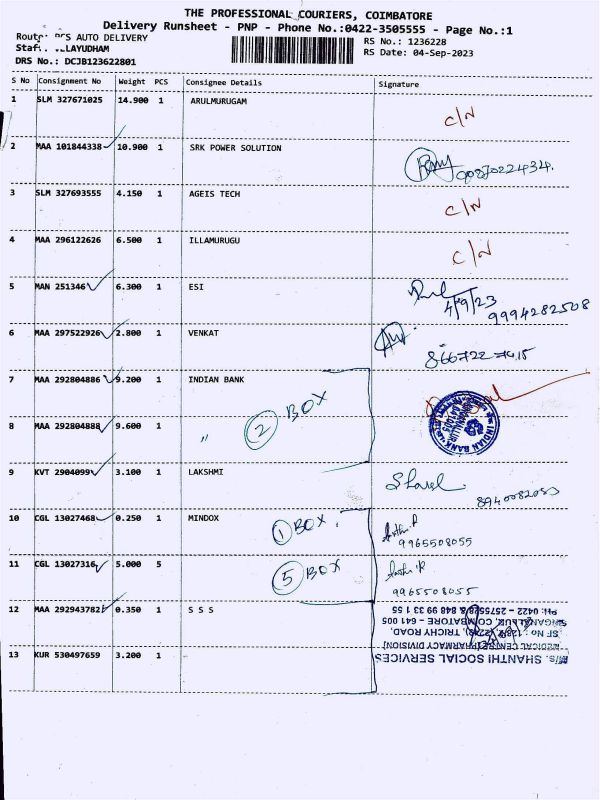 THE PROFESSIONAL COURIERS, COIMBATORE
Delivery Runsheet - PNP - Phone No.:0422-3505555 - Page No.:1
Route: PCS AUTO DELIVERY
RS No.: 1236228
Staf. . .LAYUDHAM
RS Date: 04-Sep-2023
DRS No.: DCJB123622801
S No Consignment No Weight PCS Consignee Details Signature
1 SLM 327671025 14.900 1 ARULMURUGAM C/N
2 MAA 101844338 ✓ 10.900 1 SRK POWER SOLUTION
3 SLM 327693555 4.150 1 AGEIS TECH C/N
4 MAA 296122626 6.500 1 ILLAMURUGU C/N
5 MAN 251346 ✓ 6.300 1 ESI 4/9/23
9994282508
6 MAA 297522926 ✓ 2.800 1 VENKAT
7 MAA 292804886 ✓ 9.200 1 INDIAN BANK
2 BOX
8 MAA 292804888 ✓ 9.600 1 "
INDIAN BANK
9 KVT 2904099 ✓ 3.100 1 LAKSHMI
10 CGL 13027468 ✓ 0.250 1 MINDOX 1 BOX
9965508055
11 CGL 13027316 ✓ 5.000 5 5 BOX
9965508055
12 MAA 292943782 ✓ 0.350 1 S S S
PH: 0422 - 2575528 & 848 99 33 1 55
SINGANALLUR, COIMBATORE - 641 005
TRICHY ROAD,
MEDICAL CENTRE (PHARMACY DIVISION)
M/s. SHANTHI SOCIAL SERVICES
13 KUR 530497659 3.200 1